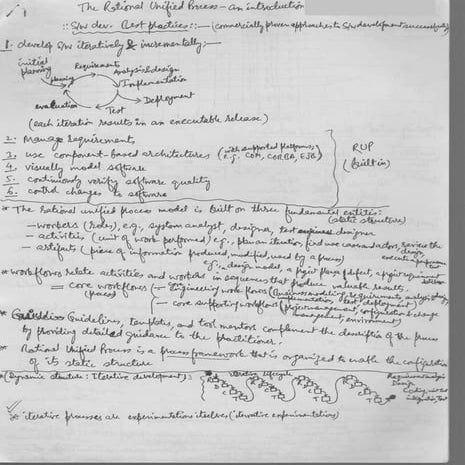 The Rational Unified Process - an introduction
:: S/w dev. Best practices:: - (commercially proven approaches to s/w development successfully)
1. develop S/w iteratively & incrementally:-
initial planning
Requirements
planning
Analysis & design
Implementation
evaluation
Test
Deployment
(each iteration results in an executable release)
2. Manage requirements
3. use component-based architectures (with supported platforms, e.g. COM, CORBA, EJB)
4. visually model software
5. continuously verify software quality
6. control changes to software
RUP
(built in)
* The rational unified process model is built on three fundamental entities:
(static structure)
- workers (roles), e.g., system analyst, designer, test designer
- activities (unit of work performed) e.g., plan iteration, find use cases and actors, review the design, execute performance
- artifacts (piece of information produced, modified, used by a process)
e.g., design model, a project plan, defect, a project requirement
* workflows relate activities and workers in sequences that produce valuable results.
= core workflows - Engineering workflows (Business modeling, requirements, analysis & design, implementation, test, deployment)
(process)
- core supporting workflows (project management, configuration & change management, environment)
* Guidelines, templates, and tool mentors complement the description of the process
by providing detailed guidance to the practitioner.
* Rational Unified Process is a process framework that is organized to enable the configuration
of its static structure
* (Dynamic structure: Iterative development):
iterative lifecycle
Requirements analysis
Design
* iterative processes are experimentations itselves (iterative experimentations)